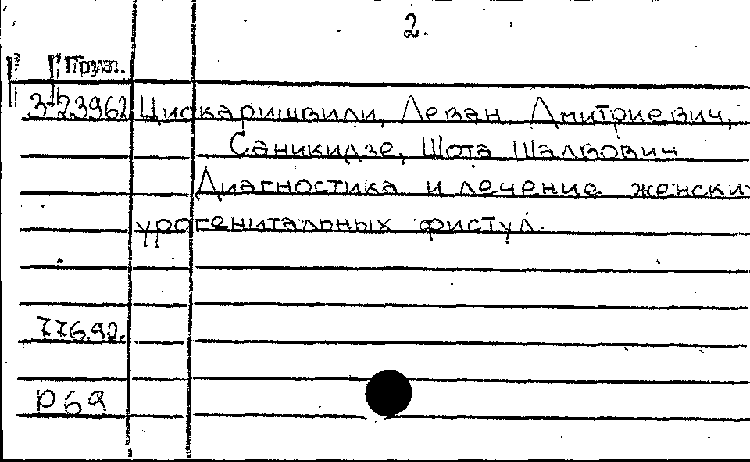 2.
Груз.
3-23962 Цискаришвили, Леван Дмитриевич,
Саникидзе, Шота Шалвович
Диагностика и лечение женски
урогенитальных фистул.
776.92.
Р69